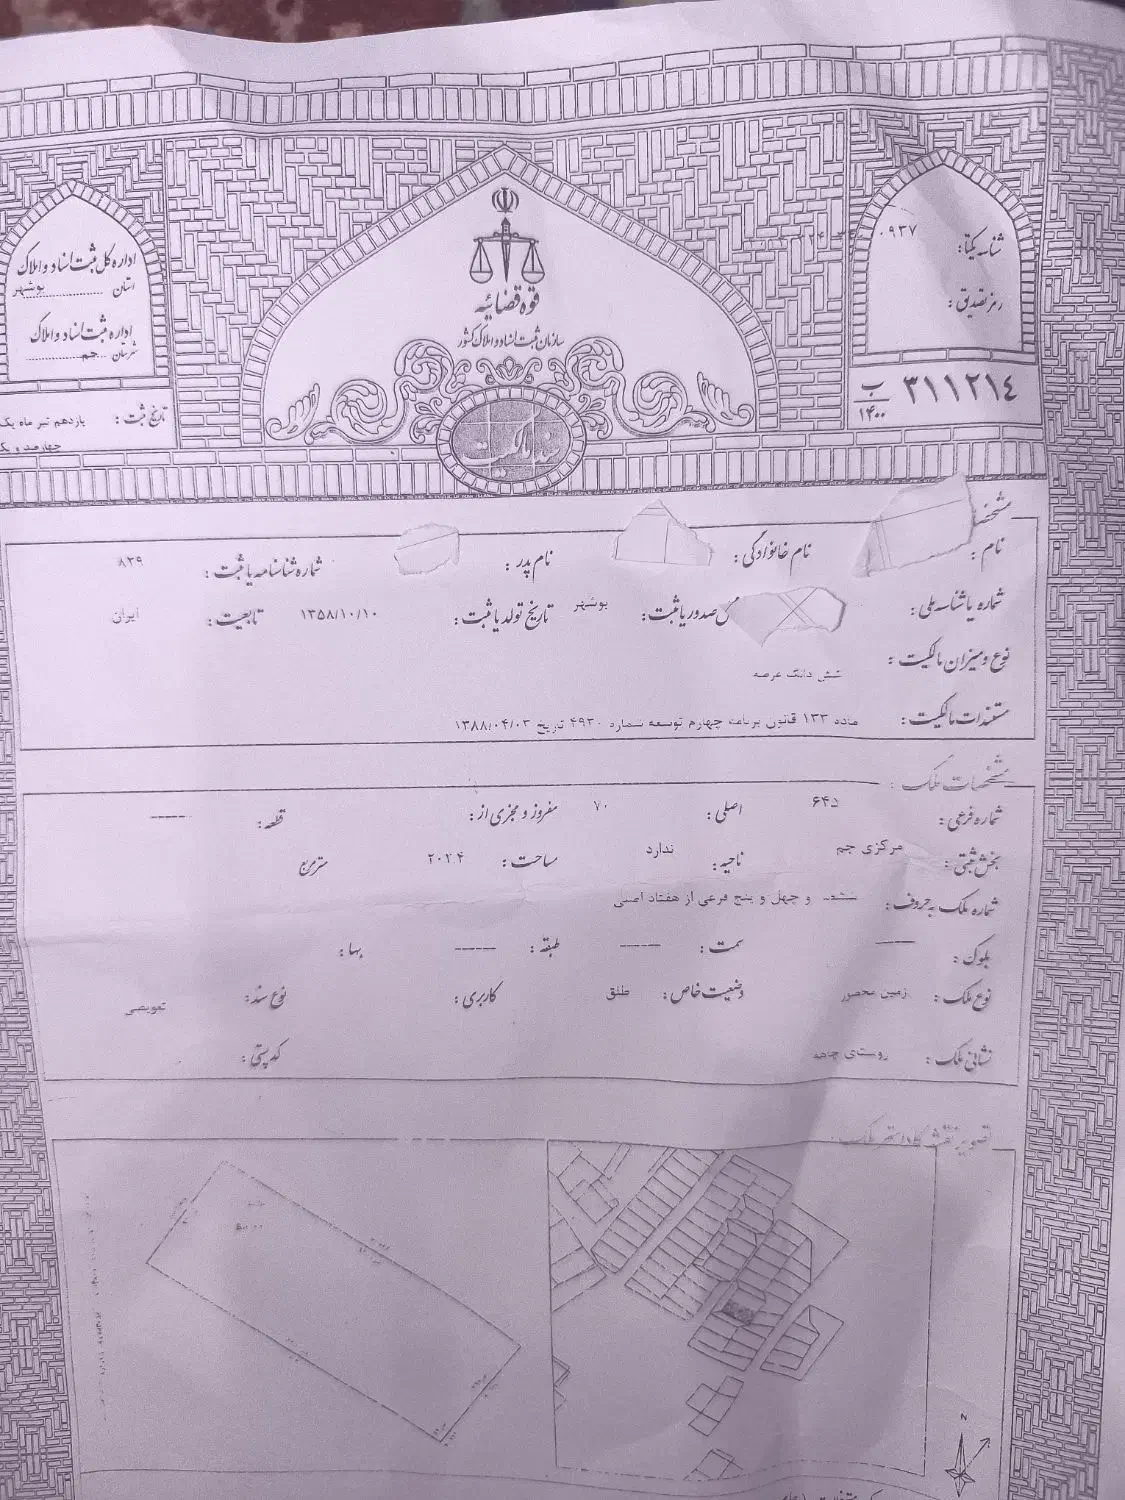 شناسه یکتا: ۰۹۳۷
رمز تصدیق:
۳۱۱۲۱۴ ب ۱۴۰۰
قوه قضائیه
سازمان ثبت اسناد و املاک کشور
سند مالکیت
اداره کل ثبت اسناد و املاک
استان بوشهر
اداره ثبت اسناد و املاک
شهرستان جم
تاریخ ثبت: یازدهم تیر ماه یک
چهارصد و یک
نام: نام خانوادگی: نام پدر: شماره شناسنامه یا ثبت: ۸۳۹
شماره یا شناسه ملی: صدور یا ثبت: بوشهر تاریخ تولد یا ثبت: ۱۳۵۸/۱۰/۱۰ تابعیت: ایران
نوع و میزان مالکیت: شش دانگ عرصه
مستندات مالکیت: ماده ۱۳۳ قانون برنامه چهارم توسعه شماره ۴۹۳۰ تاریخ ۱۳۸۸/۰۴/۰۳
مشخصات ملک:
شماره فرعی: ۶۴۵ اصلی: ۷۰ مفروز و مجزی از: قطعه: ----
بخش ثبتی: مرکزی جم ناحیه: ندارد مساحت: مترمربع
شماره ملک به حروف: ششصد و چهل و پنج فرعی از هفتاد اصلی
بلوک: ---- سمت: ---- طبقه: ---- بها:
نوع ملک: زمین محصور وضعیت خاص: طلق کاربری: نوع سند: تعویضی
نشانی ملک: روستای چاهه کد پستی:
تصویر نقشه کاداستر ملک:
N